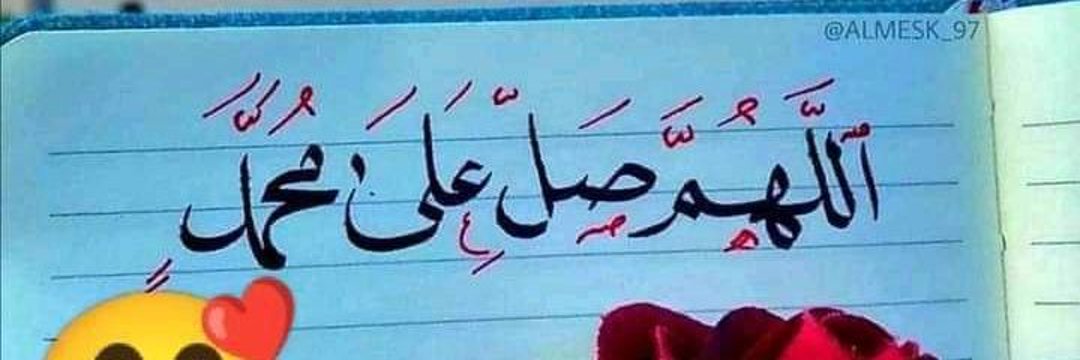 @ALMESK_97
اللَّهُمَّ صَلِّ عَلَى مُحَمَّدٍ